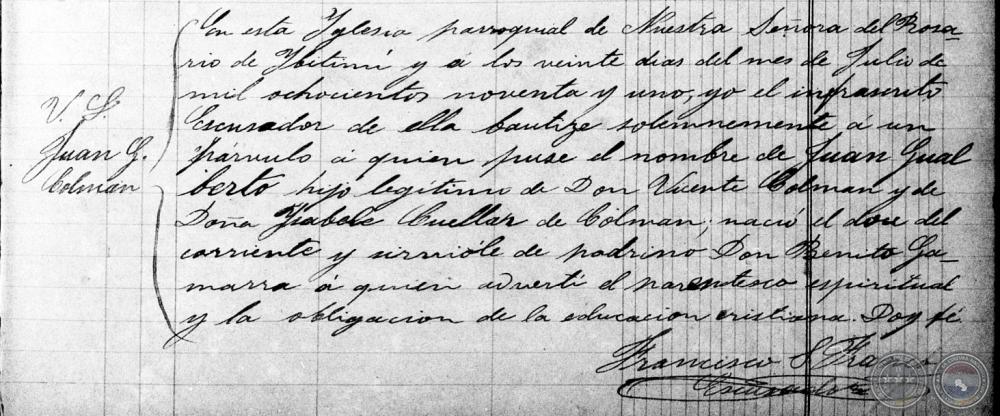 V. S.
Juan G.
Colman
En esta Yglesia parroquial de Nuestra Señora del Rosa-
rio de Ybitimí y á los veinte dias del mes de Julio de
mil ochocientos noventa y uno, yo el infrascrito
Escusador de ella bautizé solemnemente á un
párvulo á quien puse el nombre de Juan Gual
berto hijo legítimo de Don Vicente Colman y de
Doña Ysabel Cuellar de Colman; nació el doce del
corriente y sirvióle de padrino Don Benito Ga-
marra á quien advertí el parentesco espiritual
y la obligacion de la educacion cristiana. Doy fé.
Francisco S. Franco